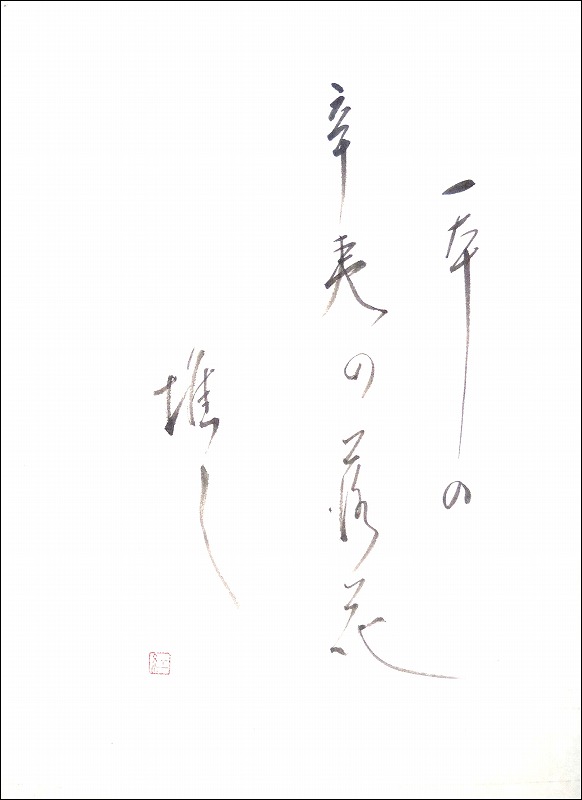 一本の
辛夷の落花
堆し